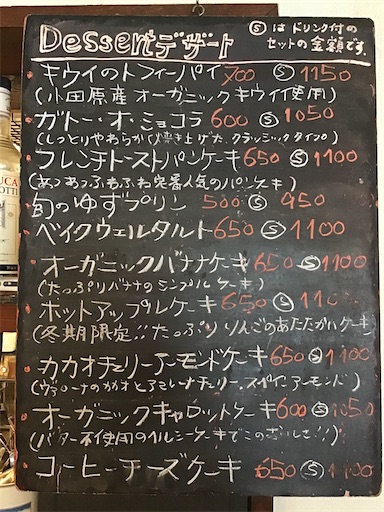 Dessert デザート
Ⓢはドリンク付の
セットの金額です。
キウイのトフィーパイ 700 Ⓢ 1150
(小田原産オーガニックキウイ使用)
ガトー・オ・ショコラ 600 Ⓢ 1050
(しっとりやわらかく焼き上げた、クラシックタイプ)
フレンチトーストパンケーキ 650 Ⓢ 1100
(あつあつふわふわ定番人気のパンケーキ)
旬のゆずプリン 500 Ⓢ 950
ベイクウェルタルト 650 Ⓢ 1100
オーガニックバナナケーキ 650 Ⓢ 1100
(たっぷりバナナのシンプルケーキ)
ホットアップルケーキ 650 Ⓢ 110
(冬期限定!!たっぷりりんごのあたたかいケーキ)
カカオチェリーアーモンドケーキ 650 Ⓢ 1100
(ヴァローナのカカオとアマレーナチェリー、スペインアーモンド)
オーガニックキャロットケーキ 600 Ⓢ 1050
(バター不使用のヘルシーケーキでこのおいしさ!!)
コーヒーチーズケーキ 650 Ⓢ 1100